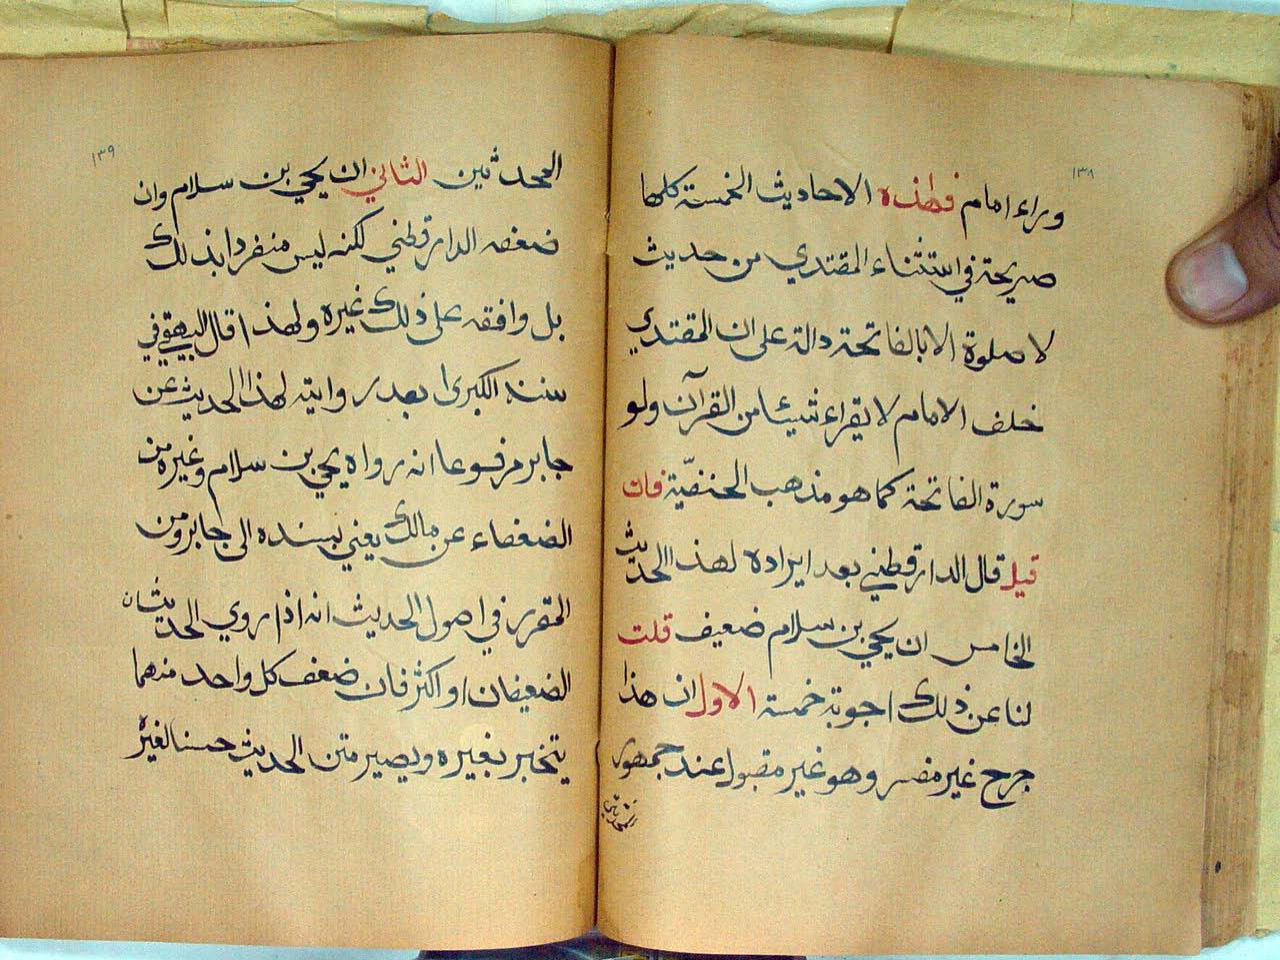 ١٣٨
وراء امام فهذه الاحاديث الخمسة كلها
صريحة في استثناء المقتدي من حديث
لا صلوة الا بالفاتحة دالة على ان المقتدي
خلف الامام لا يقراء شيئا من القرآن ولو
سورة الفاتحة كما هو مذهب الحنفيّة فان
قيل قال الدارقطني بعد ايراده لهذا الحديث
الخامس ان يحيى بن سلام ضعيف قلت
لنا عن ذلك اجوبة خمسة الاول ان هذا
جرح غير مفسر وهو غير مقبول عند جمهور
المحدثين
١٣٩
المحدثين الثاني ان يحيى بن سلام وان
ضعفه الدارقطني لكنه ليس منفردا بذلك
بل وافقه على ذلك غيره ولهذا قال البيهقي في
سننه الكبرى بعد روايته لهذا الحديث عن
جابر مرفوعا انه رواه يحيى بن سلام وغيره من
الضعفاء عن مالك يعني بسنده الى جابر ومن
المقرر في اصول الحديث انه اذا روي الحديث ان
الضعيفان او اكثر فان ضعف كل واحد منهما
ينجبر بغيره ويصير متن الحديث حسنا لغيره